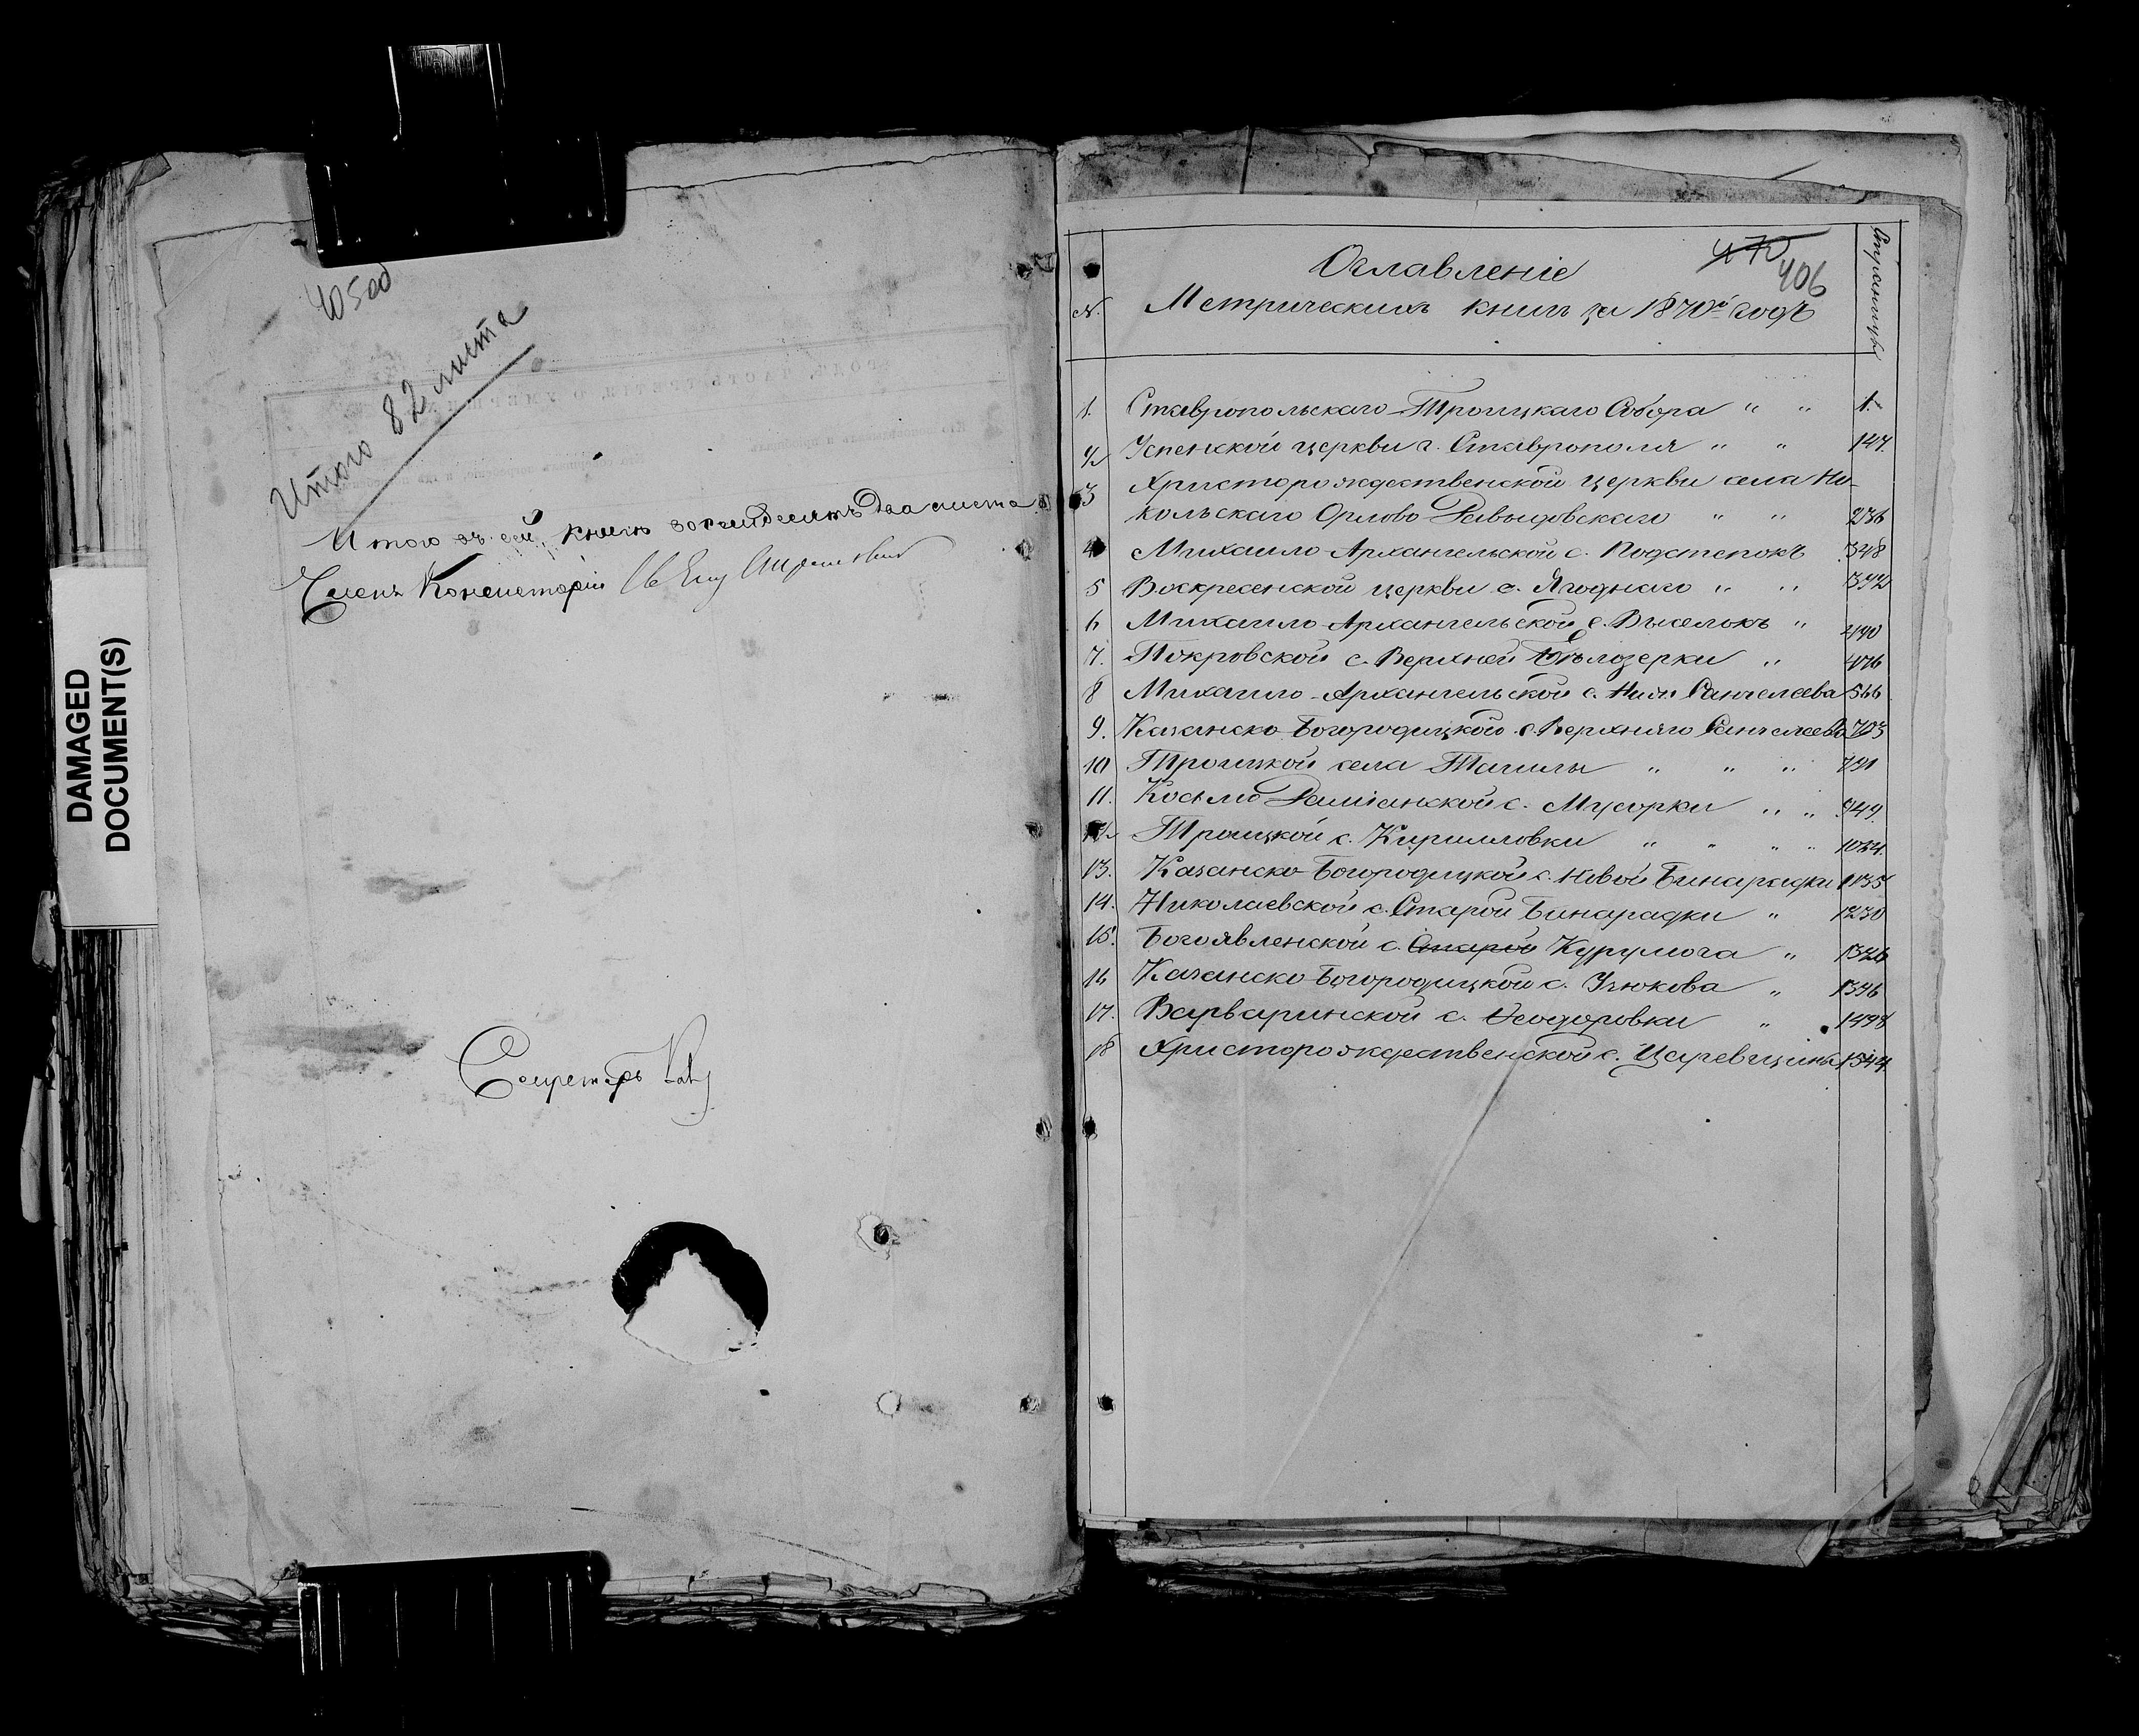 405об
Итого 82 листа
Итого въ сей книгѣ восемьдесятъ два листа.
Членъ Консисторіи
Секретарь
DAMAGED
DOCUMENT(S)
470
406
Оглавленіе
№.
Метрическихъ книгъ за 1870й годъ
Страницы
1. Ставропольскаго Троицкаго Собора " " 1.
2 Успенской церкви г. Ставрополя " " 147.
3 Христорождественской церкви села Ни-
кольскаго Орлово Давыдовскаго " " 236
4 Михаило-Архангельской с. Подстепокъ 348
5 Воскресенской церкви с. Ягоднаго " " 392
6 Михаило-Архангельской с. Выселокъ "
7. Покровской с. Верхней Бѣлозерки " 476
8 Михаило-Архангельской с. Нижн Санчелеева 566
9. Казанско-Богородицкой с. Верхняго Санчелеева 703
10 Троицкой села Ташлы " " " 791
11. Косьмо Даміанской с. Мусорки " " 949.
12 Троицкой с. Кирилловки " " " " 1024.
13. Казанско-Богородицкой с. Новой Бинарадки 1135
14. Николаевской с. Старой Бинарадки " 1230
15. Богоявленской с. Старой Курумоча " 1326
16 Казанско-Богородицкой с. Узюкова " 1396
17. Варваринской с. Ѳеодоровки " 1498
18 Христорождественской с. Царевщины 1544.